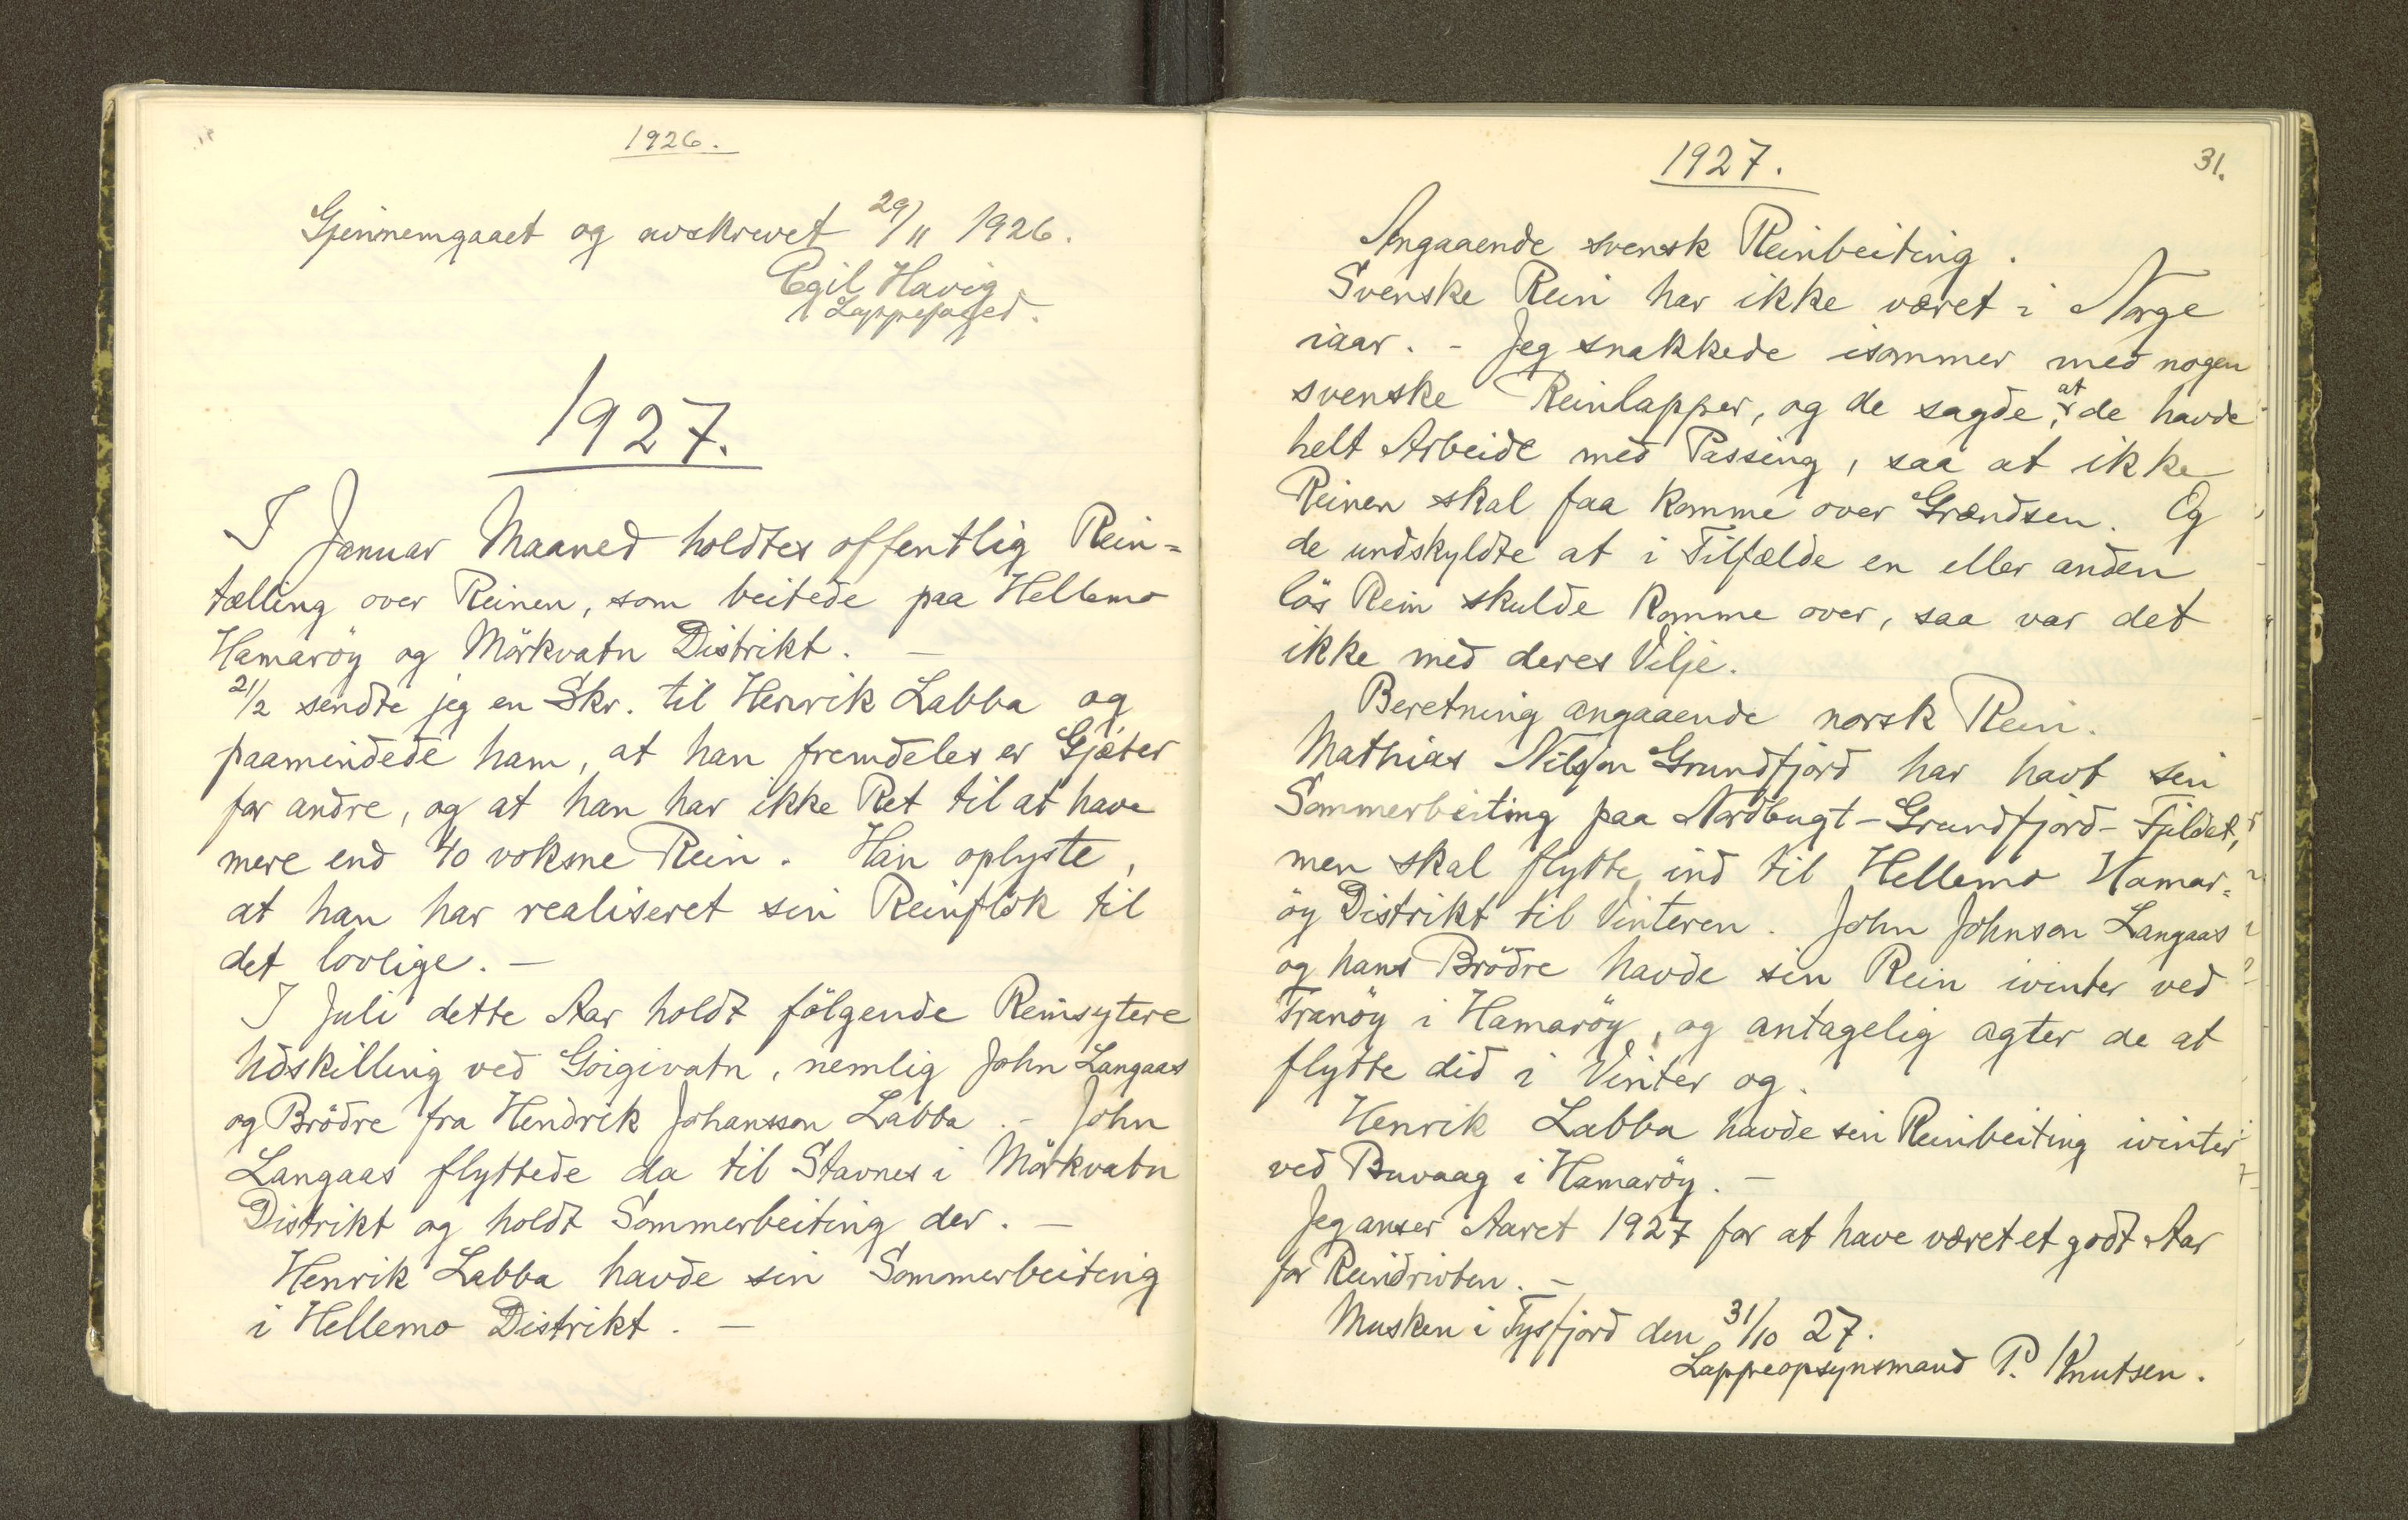 1926.
Gjennemgaaet og avskrevet 29/11 1926.
Egil Havig
Lappefoged.
1927.
I Januar Maaned holdtes offentlig Rein=
tælling over Reinen, som beitede paa Hellemo
Hamaröy og Mörkvatn Distrikt. —
21/2 sendte jeg en Skr. til Henrik Labba og
paamindede ham, at han fremdeles er Gjæter
for andre, og at han har ikke Ret til at have
mere end 40 voksne Rein. Han oplyste,
at han har realiseret sin Reinflok til
det lovlige. —
I Juli dette Aar holdt fölgende Reinsytere
Udskilling ved Goigivatn, nemlig John Langaas
og Brödre fra Hendrik Johansson Labba. - John
Langaas flyttede da til Stavnes i Mörkvatn
Distrikt og holdt Sommerbeiting der. —
Henrik Labba havde sin Sommerbeiting
i Hellemo Distrikt. —
1927.
31.
Angaaende svensk Reinbeiting.
Svenske Rein har ikke været i Norge
iaar. - Jeg snakkede isommer med nogen
svenske Reinlapper, og de sagde, at de havde
helt Arbeide med Passing, saa at ikke
Reinen skal faa komme over Grændsen. Og
de undskyldte at i Tilfælde en eller anden
lös Rein skulde komme over, saa var det
ikke med deres Vilje.
Beretning angaaende norsk Rein.
Mathias Nilsen Grundfjord har havt sin
Sommerbeiting paa Nordbugt-Grundfjord-Fjeldet,
men skal flytte ind til Hellemo Hamar=
öy Distrikt til Vinteren. John Johnson Langaas
og hans Brödre havde sin Rein ivinter ved
Tranöy i Hamaröy, og antagelig agter de at
flytte did i Vinter og.
Henrik Labba havde sin Reinbeiting ivinter
ved Buvaag i Hamaröy. —
Jeg anser Aaret 1927 for at have været et godt Aar
for Reindrivten. —
Musken i Tysfjord den 31/10 27.
Lappeopsynsmand P. Knutsen.